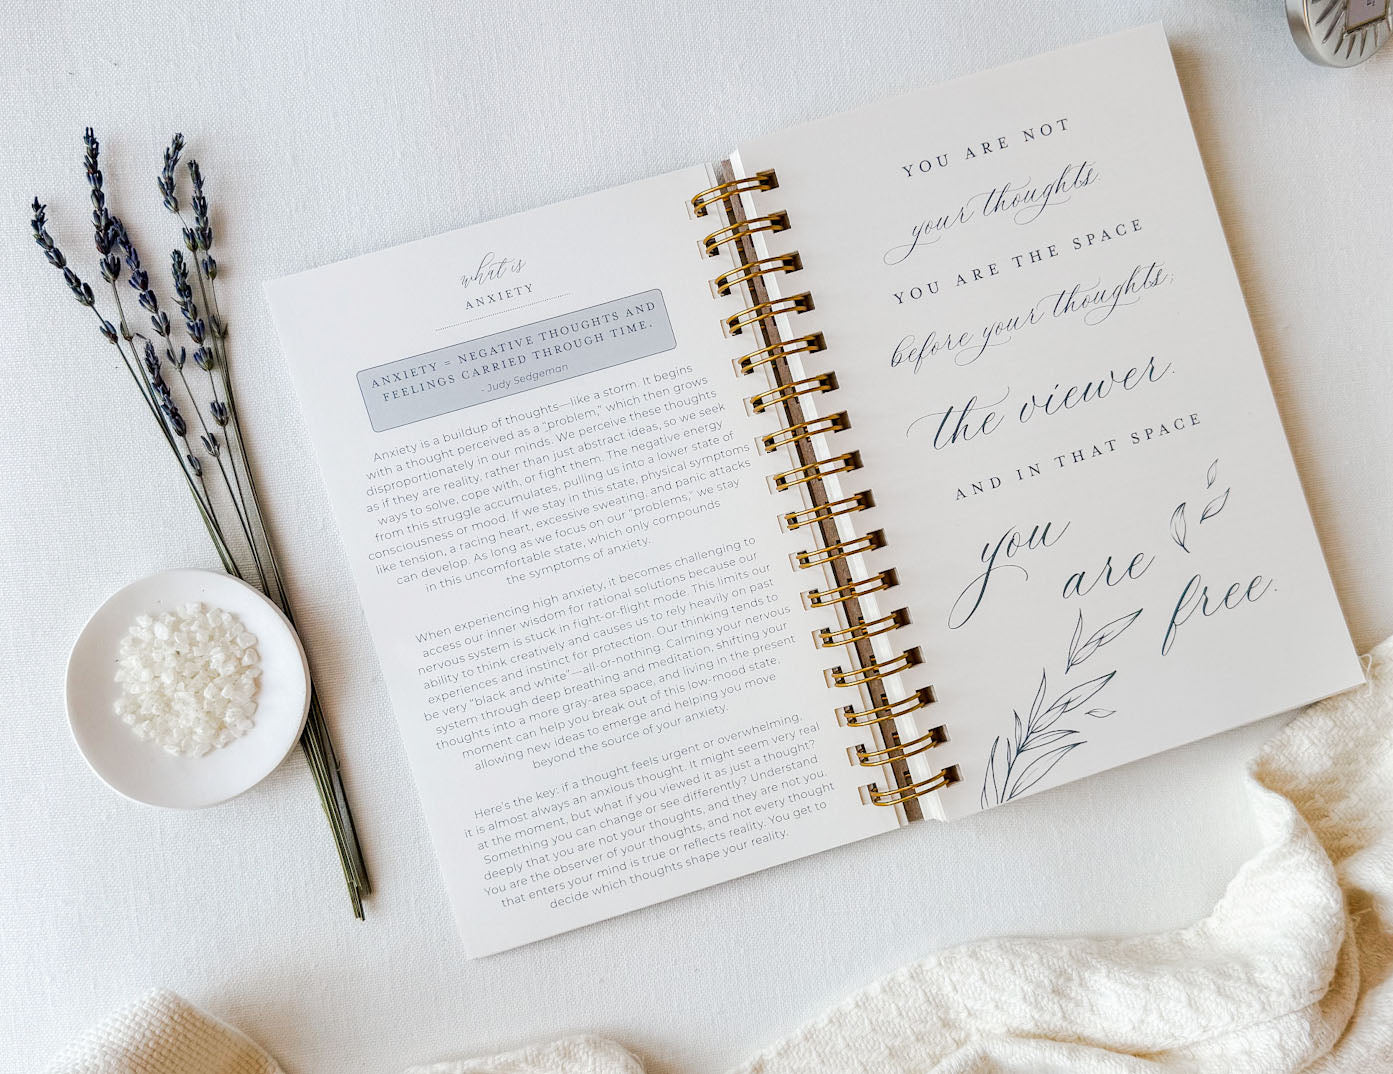 what is
ANXIETY
ANXIETY = NEGATIVE THOUGHTS AND
FEELINGS CARRIED THROUGH TIME.
- Judy Sedgeman
Anxiety is a buildup of thoughts—like a storm. It begins
with a thought perceived as a "problem," which then grows
disproportionately in our minds. We perceive these thoughts
as if they are reality, rather than just abstract ideas, so we seek
ways to solve, cope with, or fight them. The negative energy
from this struggle accumulates, pulling us into a lower state of
consciousness or mood. If we stay in this state, physical symptoms
like tension, a racing heart, excessive sweating, and panic attacks
can develop. As long as we focus on our "problems," we stay
in this uncomfortable state, which only compounds
the symptoms of anxiety.
When experiencing high anxiety, it becomes challenging to
access our inner wisdom for rational solutions because our
nervous system is stuck in fight-or-flight mode. This limits our
ability to think creatively and causes us to rely heavily on past
experiences and instinct for protection. Our thinking tends to
be very "black and white"—all-or-nothing. Calming your nervous
system through deep breathing and meditation, shifting your
thoughts into a more gray-area space, and living in the present
moment can help you break out of this low-mood state,
allowing new ideas to emerge and helping you move
beyond the source of your anxiety.
Here's the key: if a thought feels urgent or overwhelming,
it is almost always an anxious thought. It might seem very real
at the moment, but what if you viewed it as just a thought?
Something you can change or see differently? Understand
deeply that you are not your thoughts, and they are not you.
You are the observer of your thoughts, and not every thought
that enters your mind is true or reflects reality. You get to
decide which thoughts shape your reality.
YOU ARE NOT
your thoughts.
YOU ARE THE SPACE
before your thoughts;
the viewer.
AND IN THAT SPACE
you
are
free.